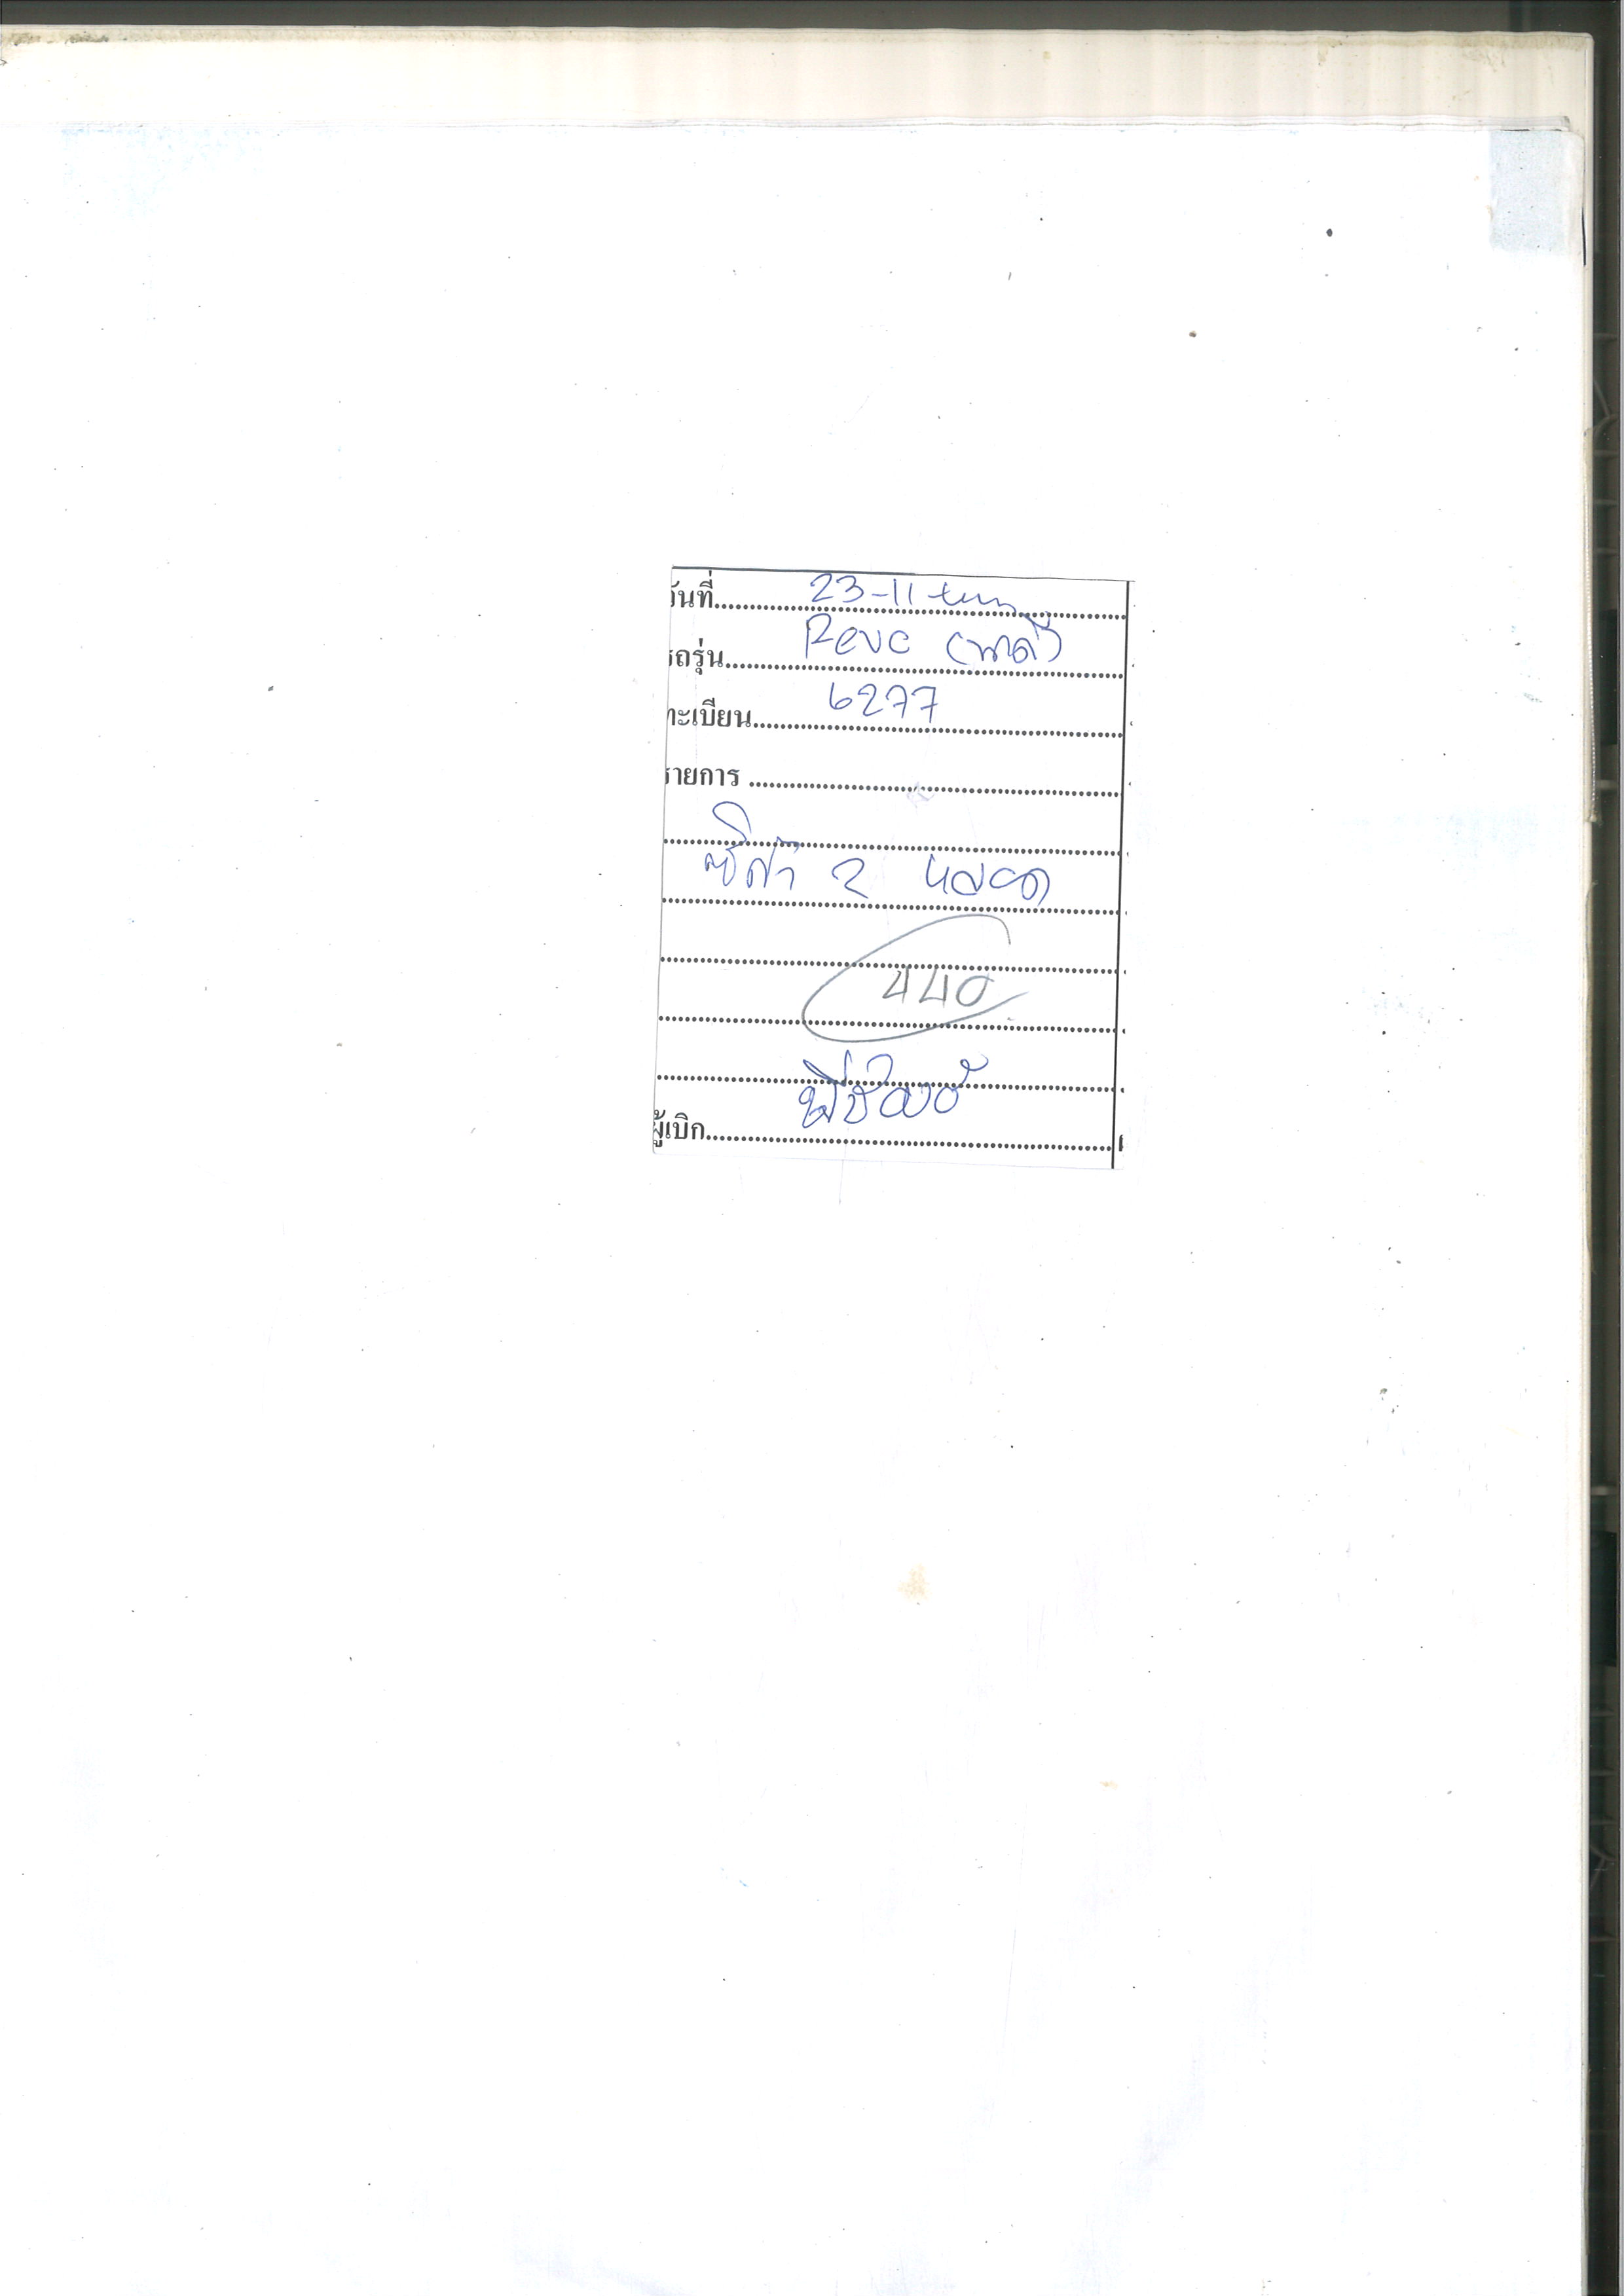 วันที่ 23-11
รถรุ่น Revo
ทะเบียน 6277
รายการ
ซิก้า 2 หลอด
440
ผู้เบิก